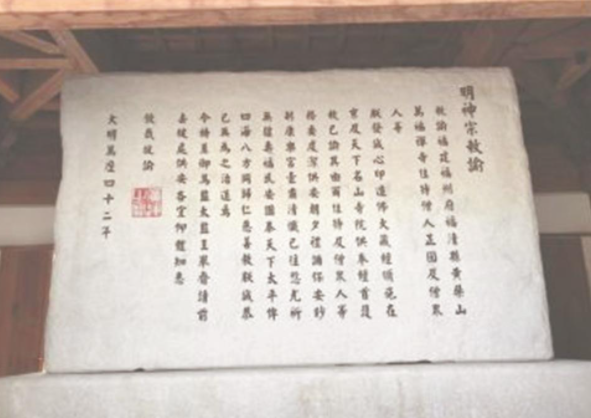 明神宗敕諭
敕諭福建福州府福清縣黄檗山
萬福禪寺住持僧人正圓及僧眾
人等
朕發誠心印造佛大藏經頒施在
京及天下名山寺院供奉經首護
敕已諭其由爾住持及僧眾人等
務要虔潔供安朝夕禮誦保安眇
躬康泰宮壼肅清懺已往愆尤祈
無疆壽福民安國泰天下太平俾
四海八方同歸仁慈善教朕成恭
己無為之治道焉
今特差御馬監太監王舉齎請前
去彼處供安各宜仰體知悉
欽哉故諭
大明萬曆四十二年